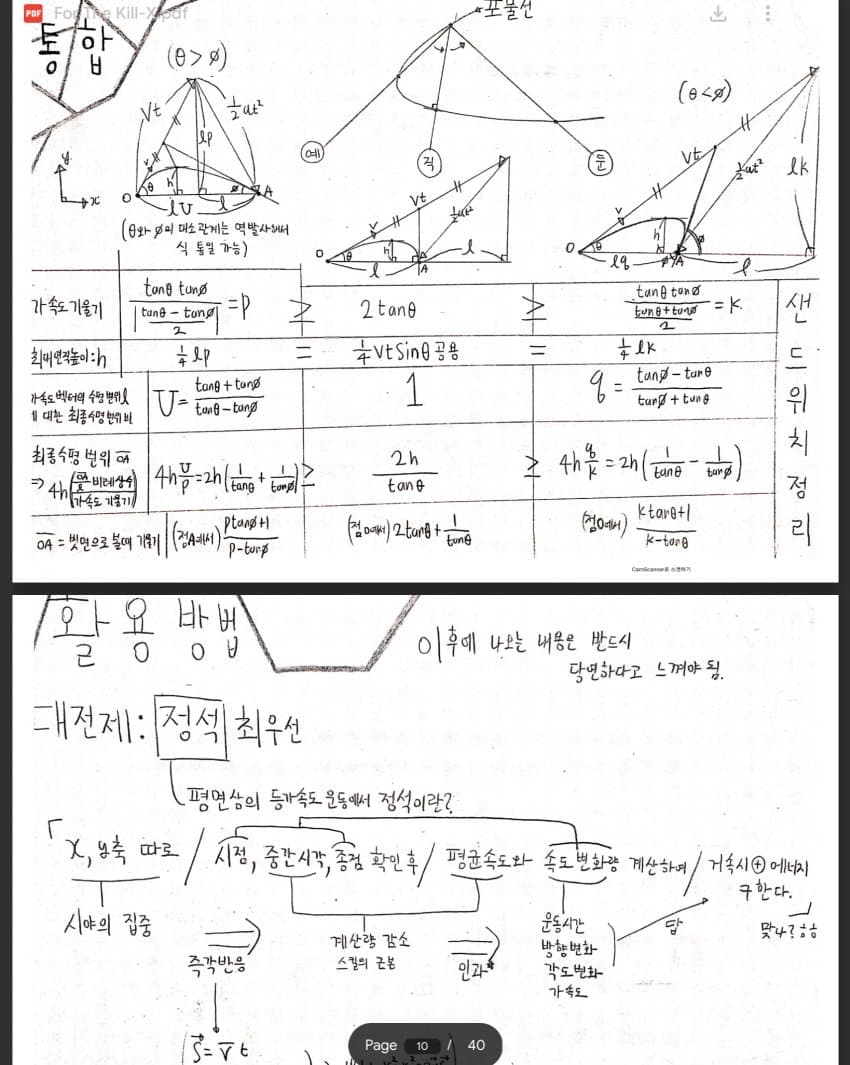 PDF For The Kill-X.pdf
통합
(θ>∅)
Vt
½at²
lp
v
θ
h
∅
A
O
lU
l
y
x
(θ와 ∅의 대소관계는 역발사해서
식 통일 가능)
포물선
예
직
둔
Vt
v
½at²
θ
h
O
l
A
l
(θ<∅)
Vt
v
½at²
lk
O
θ
h
∅
A
lq
l
가속도기울기
tanθ tan∅ / (|tanθ - tan∅| / 2) = P
≥
2tanθ
≥
tanθ tan∅ / ((tanθ + tan∅) / 2) = K
최대연직높이:h
¼lp
=
¼VtSinθ 공용
=
¼lk
가속도벡터의 수평변위l
에 대한 최종수평변위비
U = (tanθ+tan∅) / (tanθ-tan∅)
1
q = (tan∅-tanθ) / (tan∅+tanθ)
최종수평변위 OA
⇒ 4h(OA/l 비례상수 / 가속도 기울기)
4h U/P = 2h(1/tanθ + 1/tan∅)
≥
2h / tanθ
≥
4h q/k = 2h(1/tanθ - 1/tan∅)
OA = 빗면으로 볼때 기울기
(점A에서) (Ptan∅+1) / (P-tan∅)
(점O에서) 2tanθ + 1/tanθ
(점O에서) (Ktanθ+1) / (K-tanθ)
샌드위치정리
CamScanner로 스캔하기
활용방법
이후에 나오는 내용은 반드시
당연하다고 느껴야 됨.
대전제: 정석 최우선
평면상의 등가속도 운동에서 정석이란?
「x, y축 따로 / 시점, 중간시각, 종점 확인후 / 평균속도와 속도변화량 계산하며 / 거속시⊕에너지
구한다.
시야의 집중
즉각반응
계산량 감소
스킬의 근본
인과
운동시간
방향변화
각도변화
가속도
답
맞나?ㅎㅎ
S = V t
Page 10 / 40